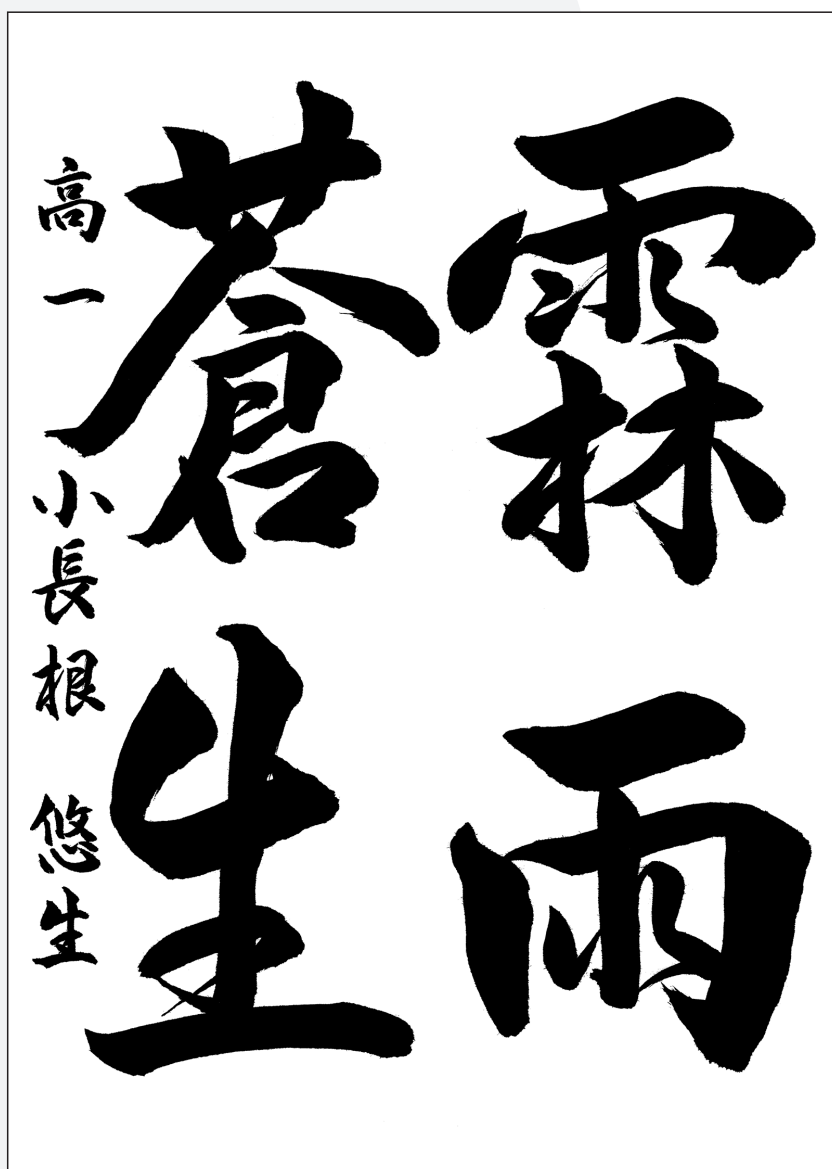 霖雨
蒼生
高一 小長根 悠生